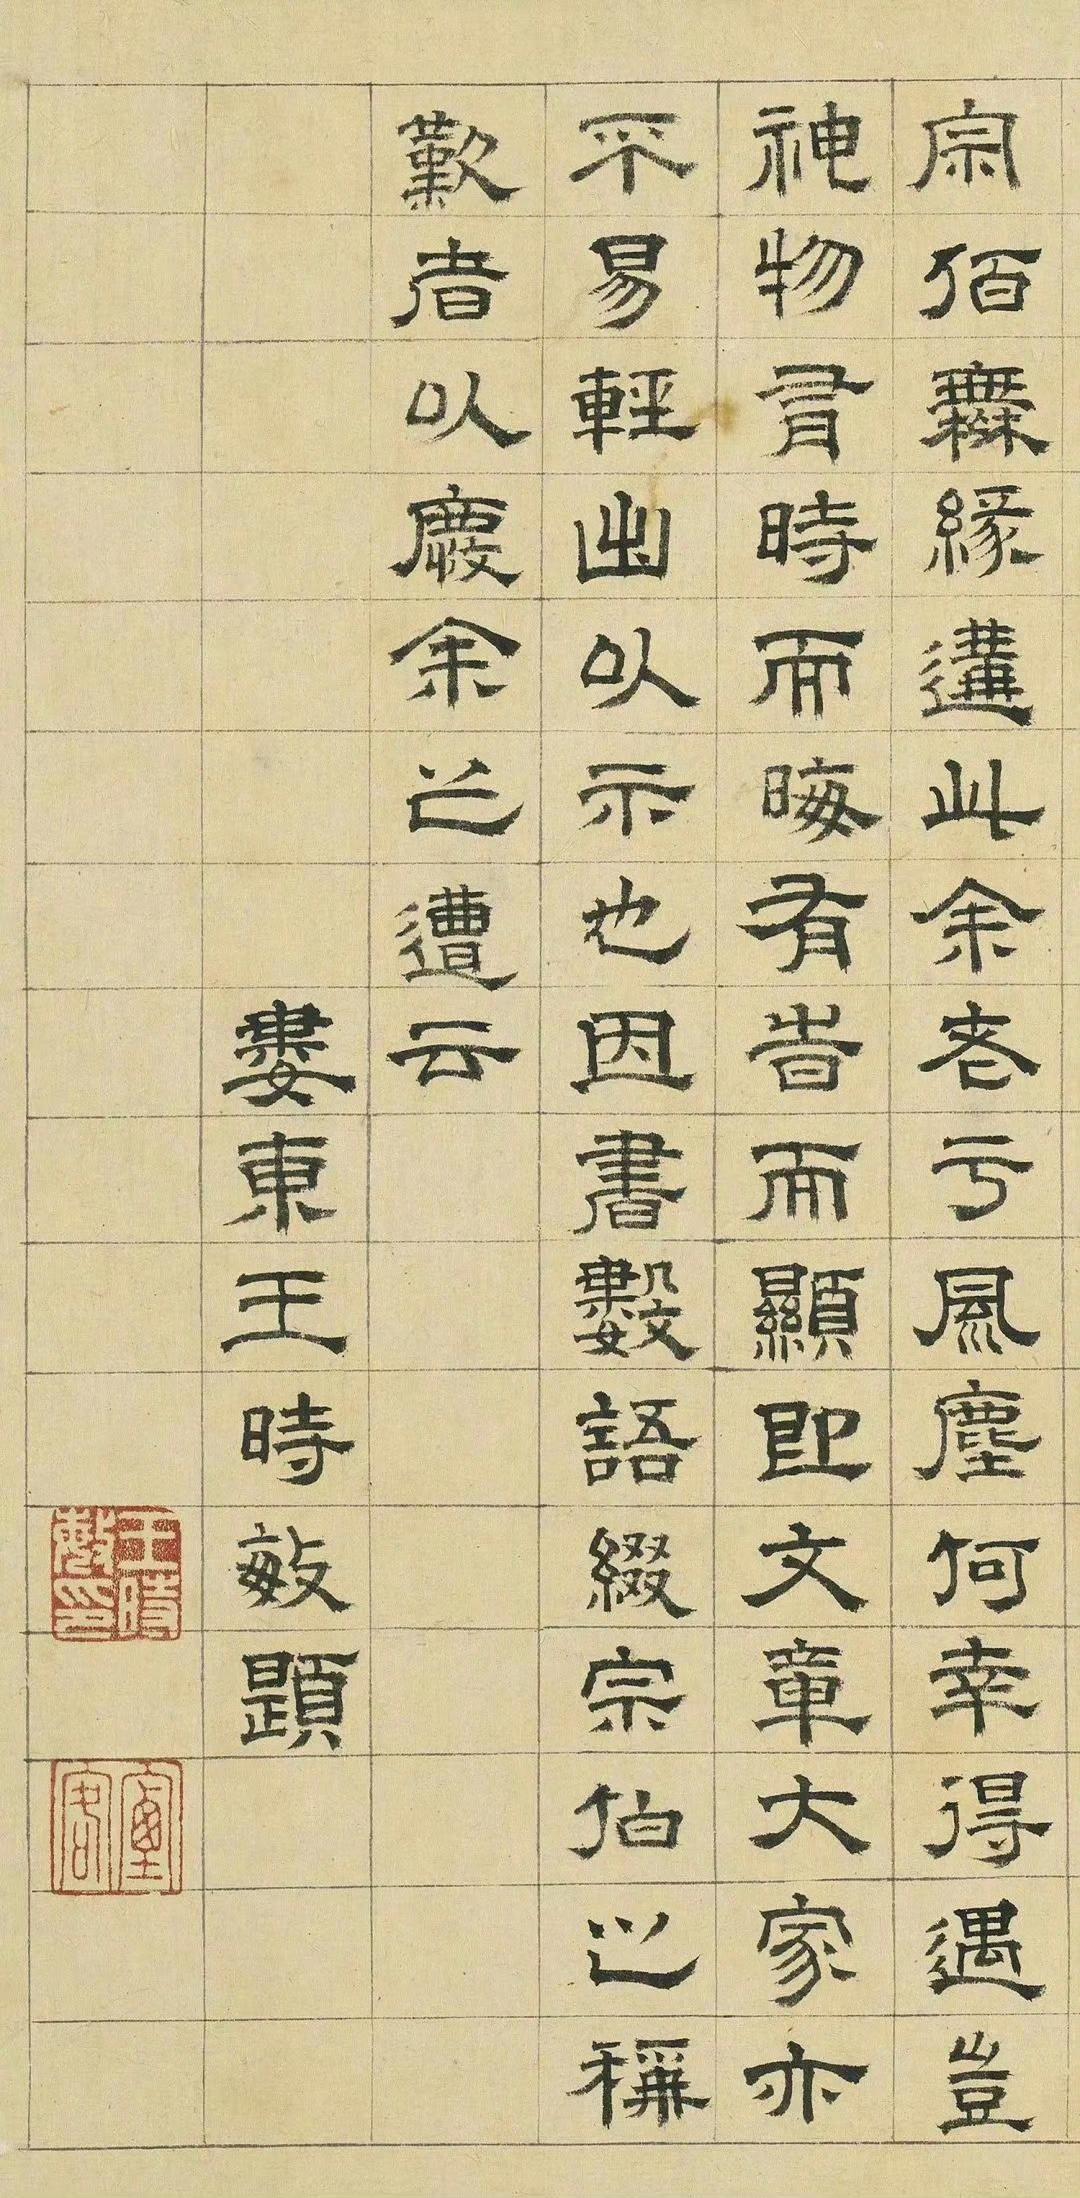 宗佰無緣遘此余老亏風塵何幸得遇豈
神物有時而晦有旹而顯即文章大家亦
不易輕出以示也因書數語綴宗伯之稱
歎者以慶余之遭云
婁東王時敏題
王時敏印